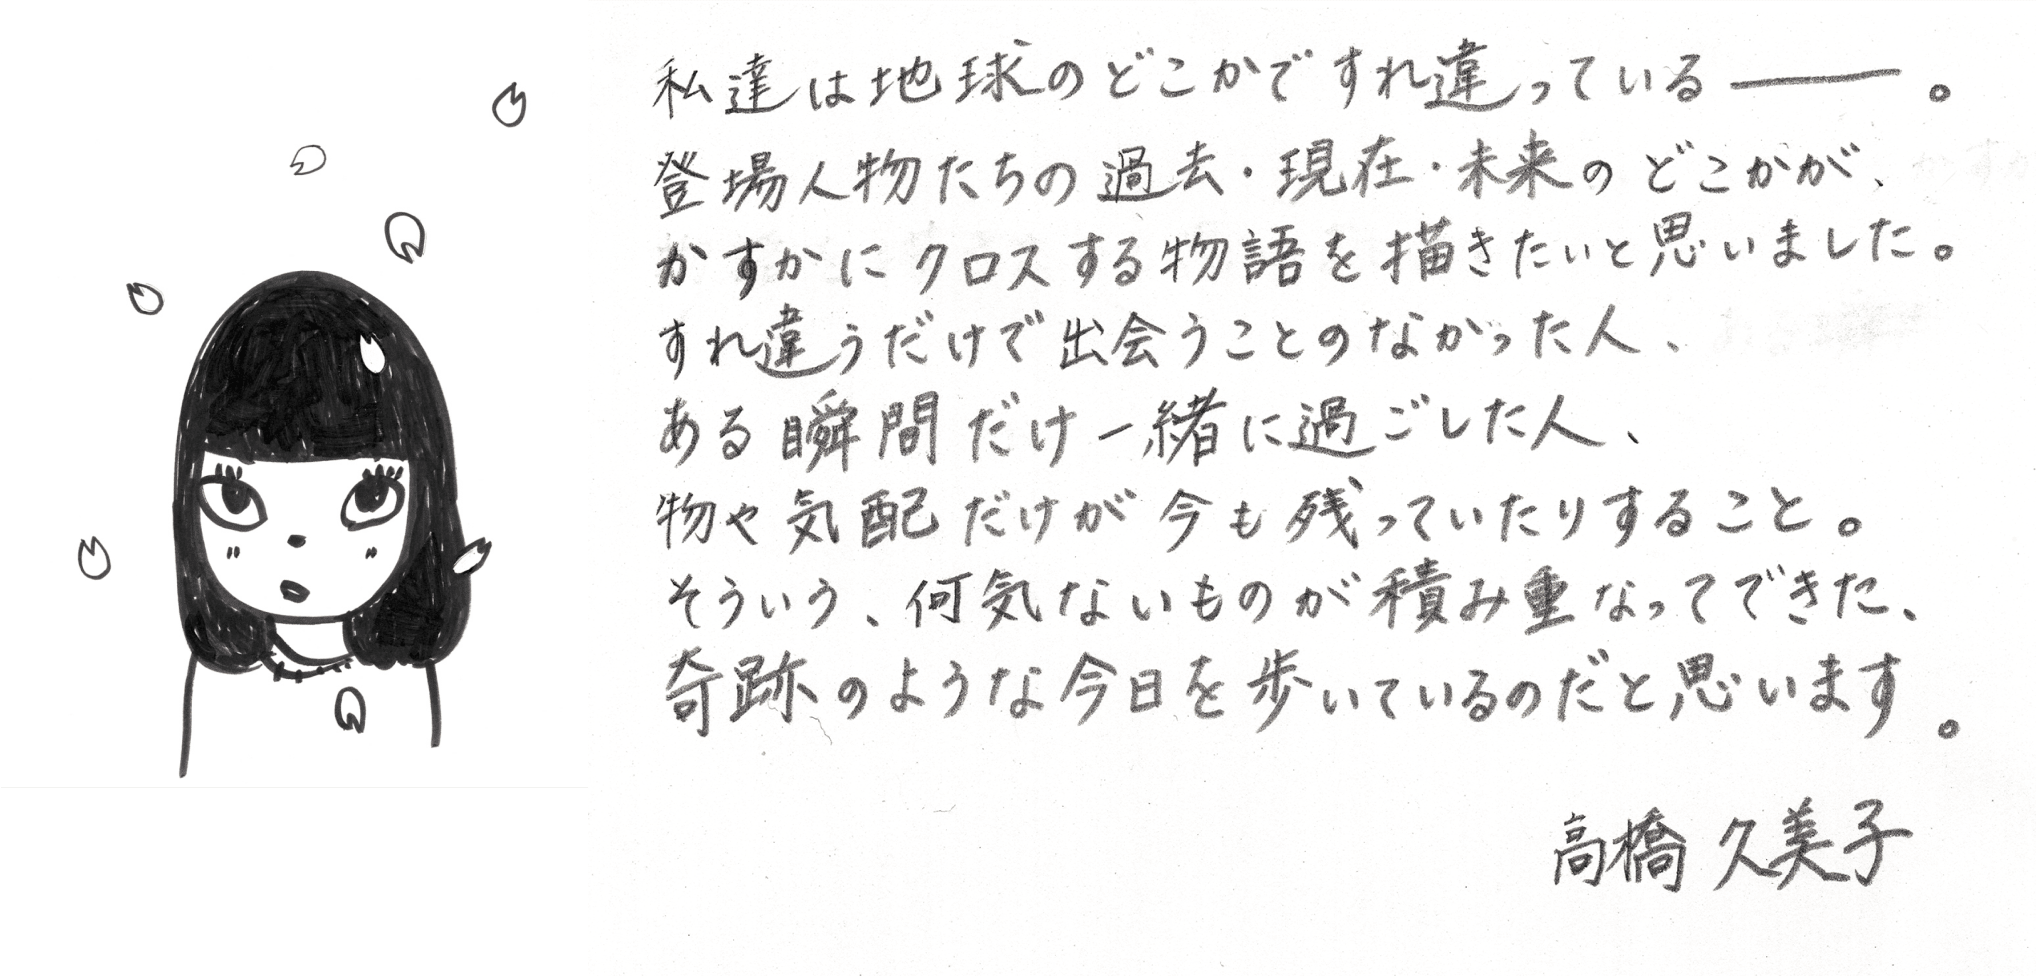 私達は地球のどこかですれ違っている――。
登場人物たちの過去・現在・未来のどこかが、
かすかにクロスする物語を描きたいと思いました。
すれ違うだけで出会うことのなかった人、
ある瞬間だけ一緒に過ごした人、
物や気配だけが今も残っていたりすること。
そういう、何気ないものが積み重なってできた、
奇跡のような今日を歩いているのだと思います。
高橋久美子